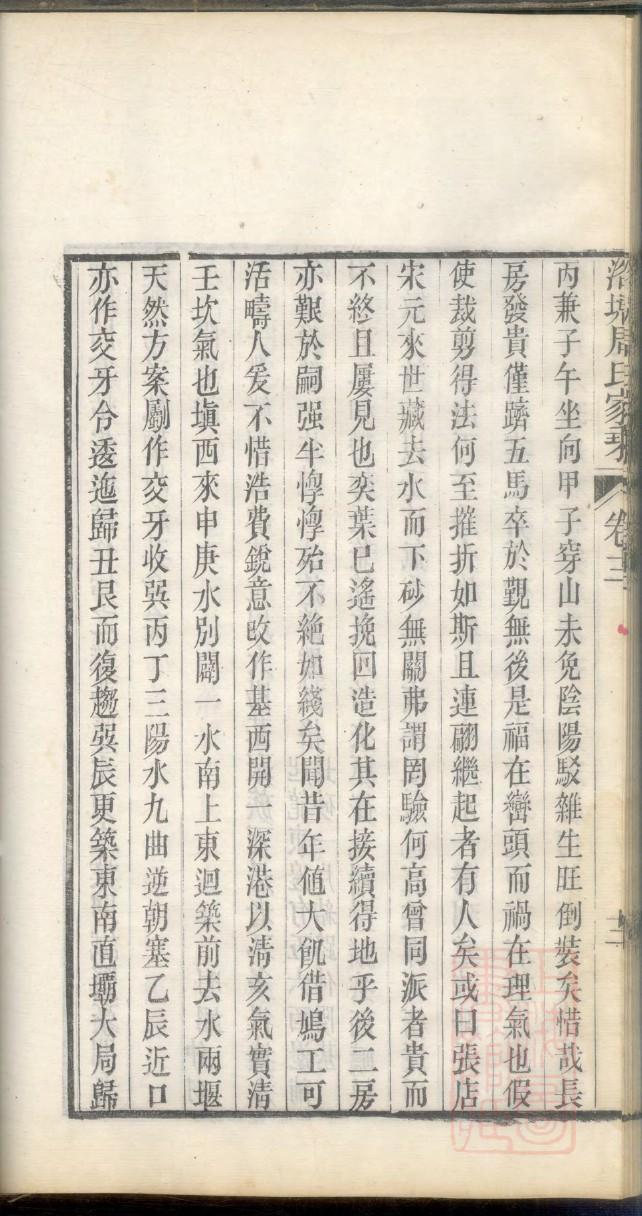 周氏家 卷三
丙兼子午坐向甲子穿山未免陰陽駁雜生旺倒裝矣惜哉長
房發貴僅躋五馬卒於覲無後是福在巒頭而禍在理氣也假
使裁剪得法何至摧折如斯且連翩繼起者有人矣或曰張店
宋元來世藏去水而下砂無關弗謂罔驗何高曾同派者貴而
不終且屢見也奕葉已遙挽回造化其在接續得地乎後二房
亦艱於嗣强半惸惸殆不絶如綫矣聞昔年値大飢借鳩工可
活疇人爰不惜浩費銳意改作基西開一深港以淸亥氣實淸
壬坎氣也塡西來申庚水別闢一水南上東迴築前去水兩堰
天然方案劚作交牙收巽丙丁三陽水九曲逆朝塞乙辰近口
亦作交牙令逶迤歸丑艮而復趨巽辰更築東南直壩大局歸